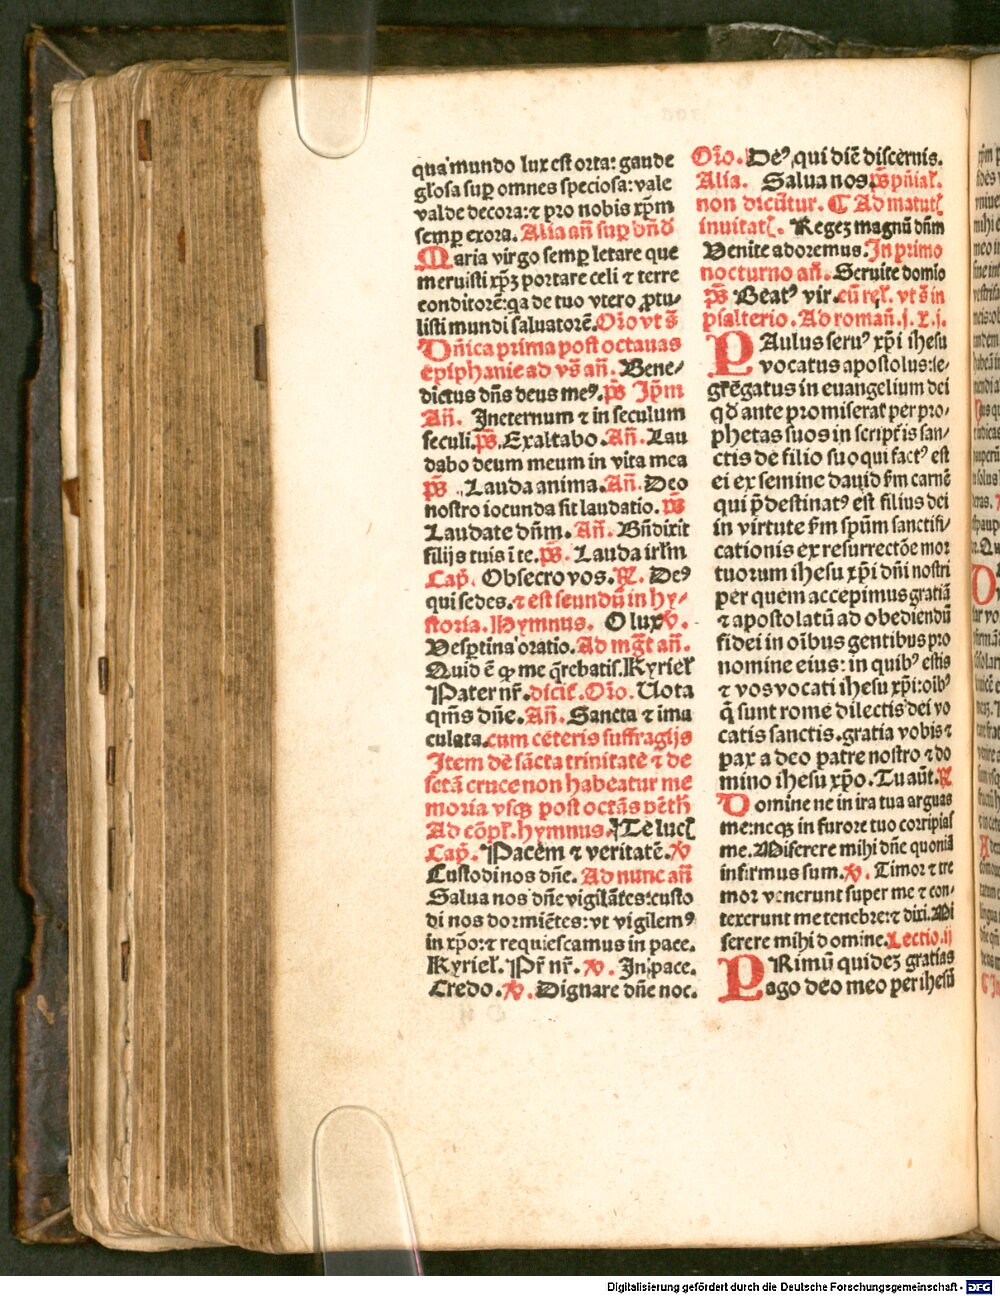 qua mundo lux est orta: gaude
gl'osa sup̲ omnes speciosa: vale
valde decora: ⁊ pro nobis xp̄m
semp̲ exora. Alia an̄ sup̲ dn̄o
Maria virgo semp̲ letare que
meruisti xp̄ꝫ portare celi ⁊ terre
conditorē: qa de tuo vtero ꝓtu⸗
listi mundi saluatorē. Or̄o vt s̄
Dn̄ica prima post octauas
epiphanie ad vs̄ an̄. Bene⸗
dictus dn̄s deus meꝰ. ps̄ Ip̄m
An̄. Ineternum ⁊ in seculum
seculi. ps̄. Exaltabo. An̄. Lau
dabo deum meum in vita mea
ps̄. Lauda anima. An̄. Deo
nostro iocunda sit laudatio. ps̄
Laudate dn̄m. An̄. Bn̄dixit
filijs tuis ī te. ps̄. Lauda irl'm
Cap̄. Obsecro vos. R̷. Deꝰ
qui sedes. ⁊ est secundū in hy⸗
storia. Hymnus. O lux v̷.
Vesp̲tina oratio. Ad mg̅t an̄.
Quid ē ꝙ me q̄rebatis. Kyriel'
Pater nr̄. dicit'. Or̄o. Uota
qm̄s dn̄e. An̄. Sancta ⁊ ima
culata. cum ceteris suffragijs
Item de sācta trinitate ⁊ de
sctā cruce non habeatur me
moria vsqꝫ post octās ...
Ad cōpl'. hymnus. Te luc̄
Cap̄. Pacem ⁊ veritatē. v̷
Custodi nos dn̄e. Ad nunc an̄
Salua nos dn̄e vigilātes: custo
di nos dormiētes: vt vigilemꝰ
in xp̄o: ⁊ requiescamus in pace.
Kyriel'. Pr̄ nr̄. v̷. In pace.
Credo. v̷. Dignare dn̄e noc.
Or̄o. Deꝰ qui diē discernis.
Alia. Salua nos. ps̄ pn̄ial'.
non dicūtur. ¶ Ad matut̄
inuitat̄. Regeꝫ magnū dn̄m
Venite adoremus. In primo
nocturno an̄. Seruite domīo
ps̄ Beatꝰ vir. cū rel'. vt s̄ in
psalterio. Ad roman̄. j. L. j.
PAulus seruꝰ xp̄i ihesu
vocatus apostolus: se⸗
gregatus in euangelium dei
qd̄ ante promiserat per pro⸗
phetas suos in script'is san⸗
ctis de filio suo qui factꝰ est
ei ex semine dauid s̄m carnē
qui p̄destinatꝰ est filius dei
in virtute s̄m spūm sanctifi⸗
cationis ex resurrectōe mor
tuorum ihesu xp̄i dn̄i nostri
per quem accepimus gratiā
⁊ apostolatū ad obediendū
fidei in oībus gentibus pro
nomine eius: in quibꝰ estis
⁊ vos vocati ihesu xp̄i: oibꝰ
q̄ sunt rome dilectis dei vo
catis sanctis. gratia vobis ⁊
pax a deo patre nostro ⁊ do
mino ihesu xp̄o. Tu aūt. R̷
Domine ne in ira tua arguas
me: neqꝫ in furore tuo corripias
me. Miserere mihi dn̄e quoniā
infirmus sum. v̷. Timor ⁊ tre
mor venerunt super me ⁊ con⸗
texerunt me tenebre: ⁊ dixi. Mi
serere mihi domine. Lectio. ij
PRimū quideꝫ gratias
ago deo meo per ihesū
Digitalisierung gefördert durch die Deutsche Forschungsgemeinschaft - DFG